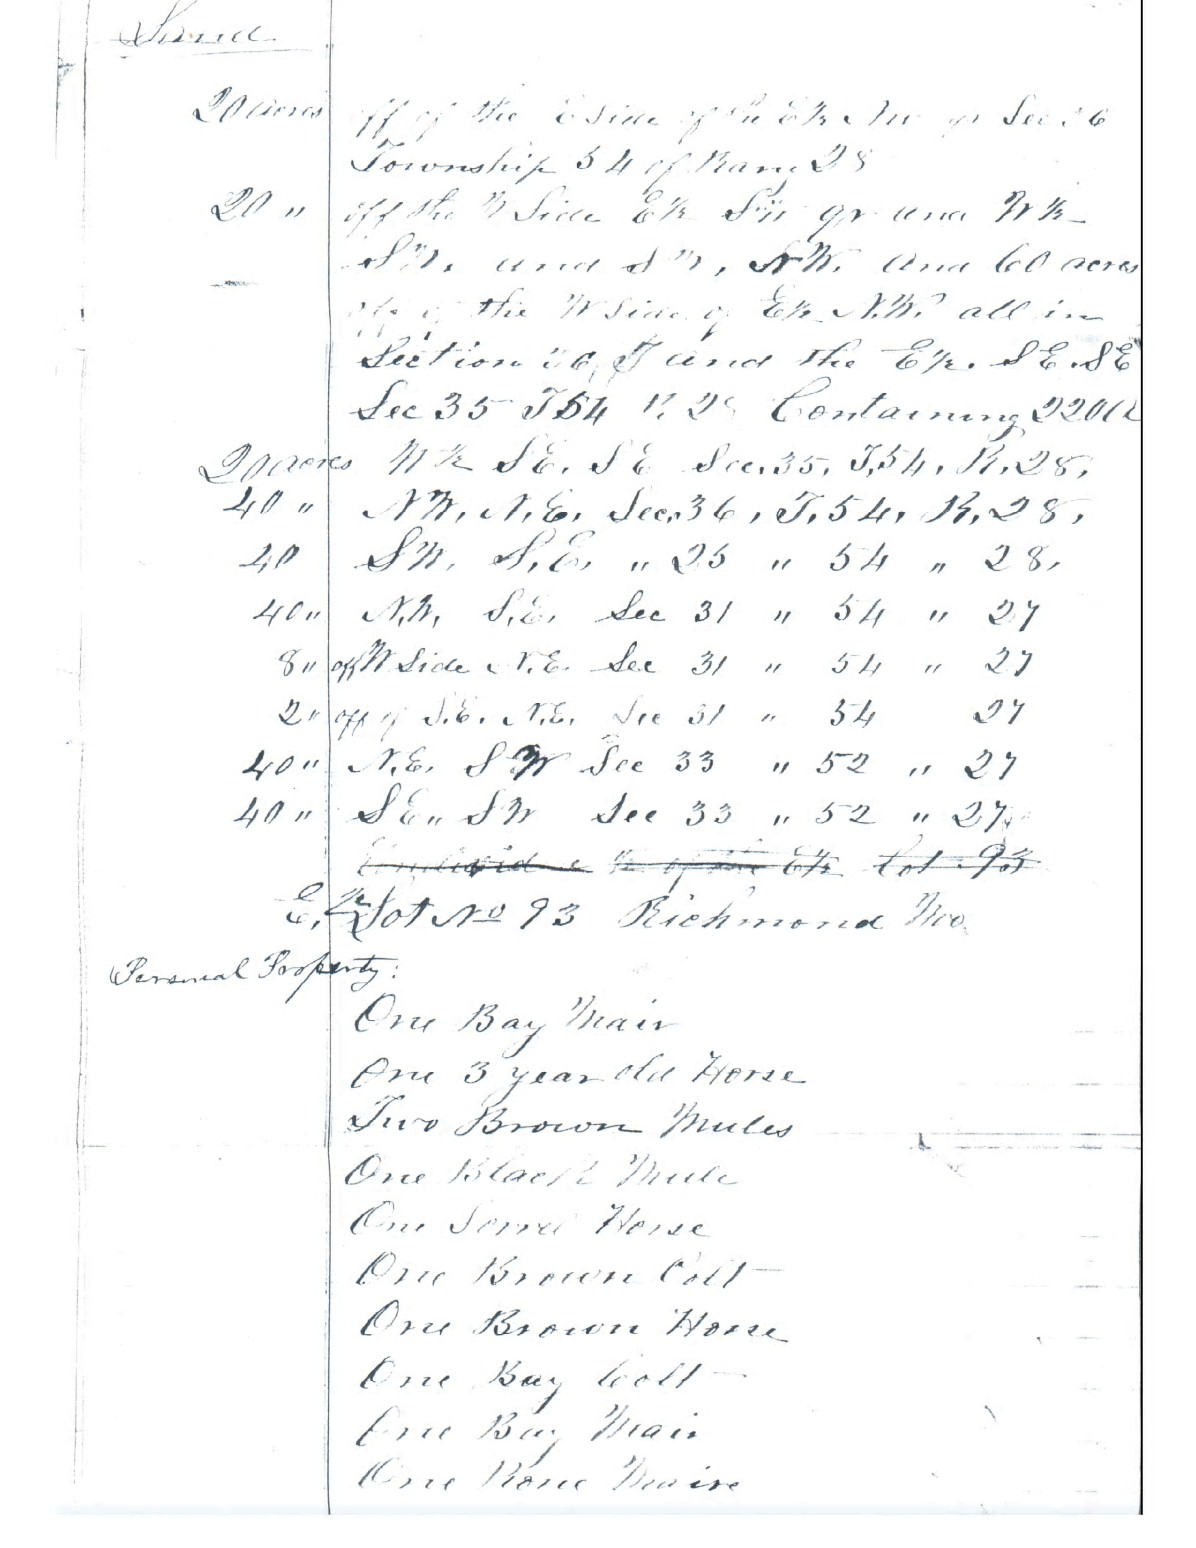 Land
20 acres off of the E Side of the E½ NW qr Sec 36
Township 54 of Rang 28
20 " off the W Side E½ SW qr and W½
SW. and SW, NW. and 60 acres
off of the W Side of E½ N.W. all in
Section 36, and the E½. SE. SE
Sec 35 T54 R. 28 Containing 220A
20 acres W½ SE. SE Sec. 35, T,54, R, 28,
40 " NW, N.E, Sec. 36, T, 54, R, 28,
40 SW, S,E, " 25 " 54 " 28,
40 " N.W, S,E, Sec 31 " 54 " 27
8 " off W Side N.E. Sec 31 " 54 " 27
2 " off of S.E. N.E. Sec 31 " 54 27
40 " N.E. SW Sec 33 " 52 " 27
40 " SE " SW Sec 33 " 52 " 27
½ of the E½ Lot 93
E, ½ Lot No 93 Richmond Mo.
Personal Property:
One Bay Mair
One 3 year old Horse
Two Brown Mules
One Black Mule
One Sorrel Horse
One Brown Colt
One Brown Horse
One Bay Colt
One Bay Mair
One Rone Maire